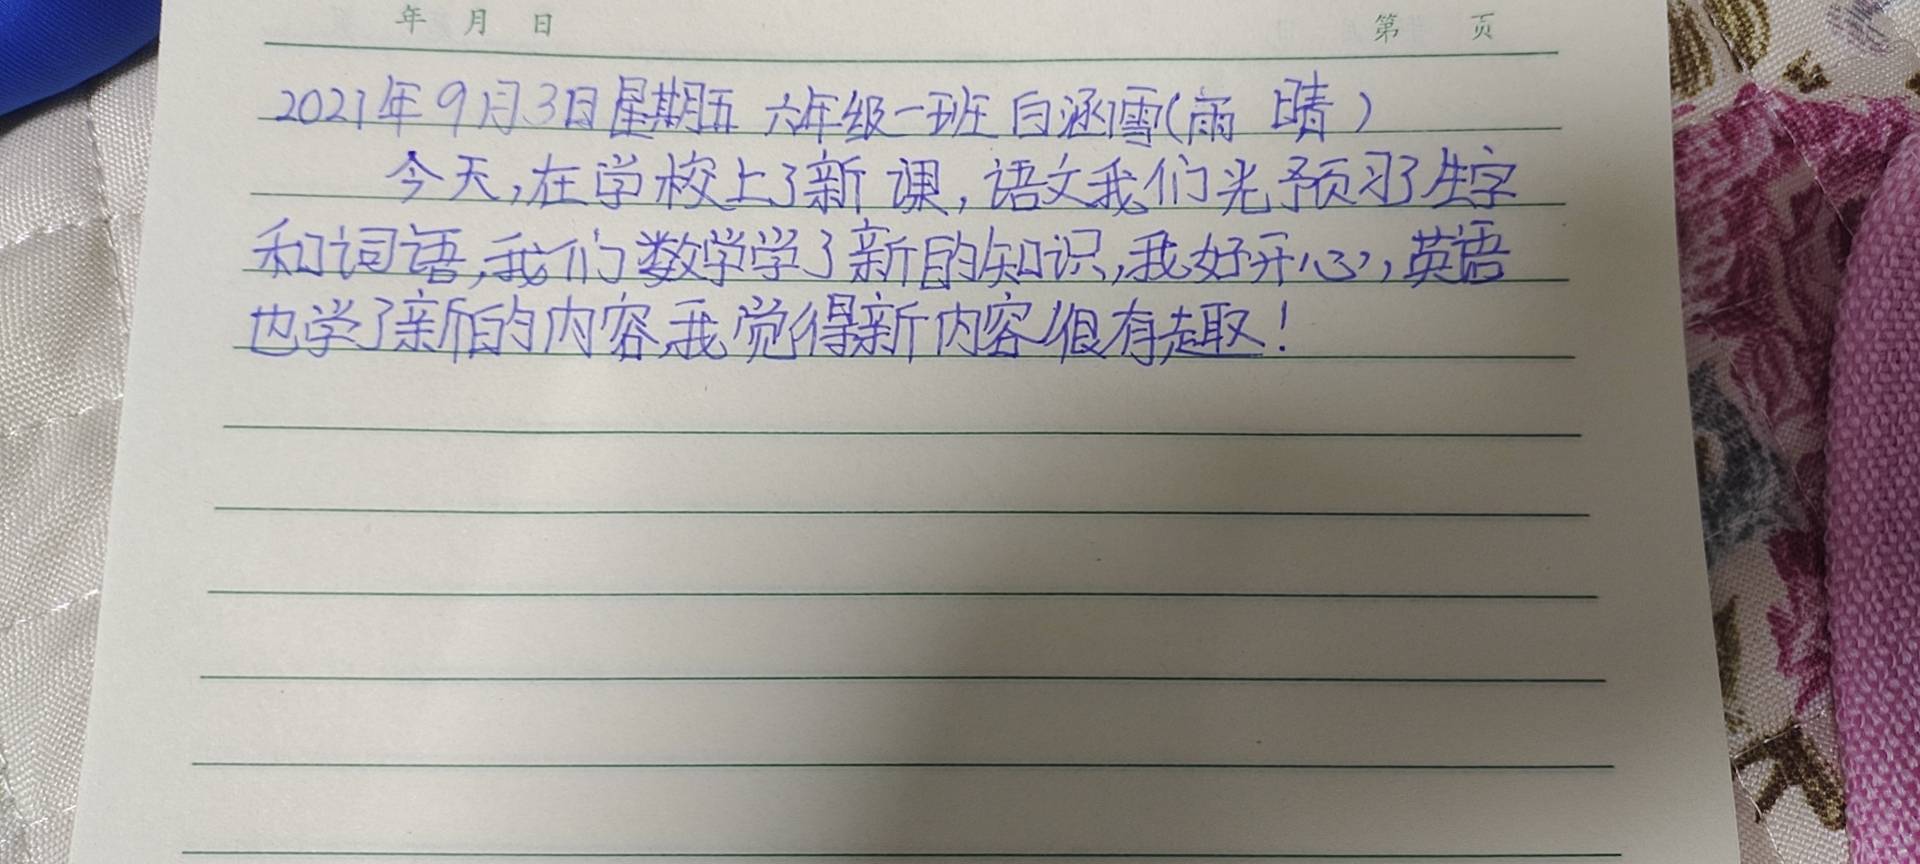 年 月 日 第 页
2021年9月3日星期五 六年级一班 白涵雪(雨 晴)
今天,在学校上了新课,语文我们光预习了生字
和词语,我们数学学了新的知识,我好开心,英语
也学了新的内容,我觉得新内容很有趣!